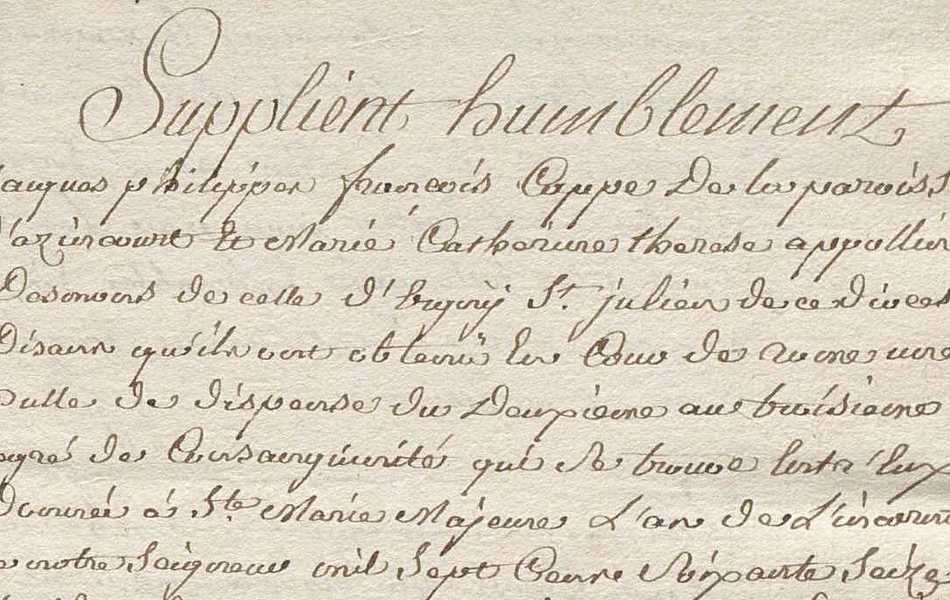 Supplient humblement
jacques philippes francois Cuppe De la paroiss
d'azincourt Et Marie Catherine therese appollin
Desmons de celle d' Eugny St. julien de ce dioces
Disant qu'ils ont obtenu En Cour de Rome une
bulle de dispense du Deuxieme au troisieme
degré de Consanguinité qui Se trouve Entr'Eux
Donnée á Ste Marie Majeure L'an de L'incarn
de notre Seigneur mil Sept Cent Soixante Seize